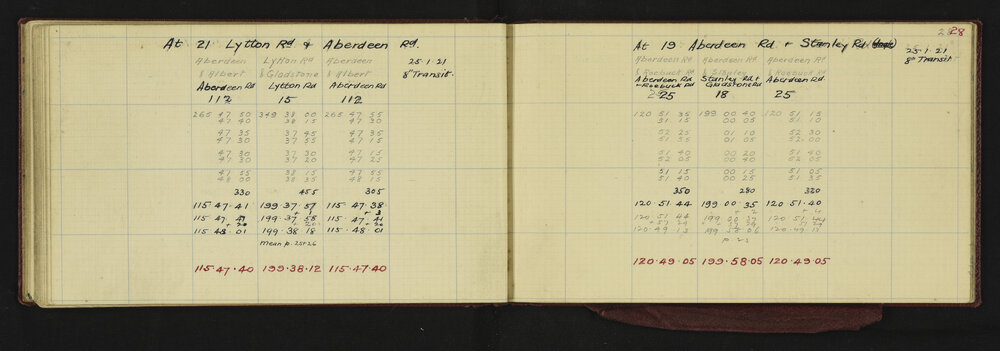 At 21 Lytton Rd & Aberdeen Rd.
Aberdeen Lytton Rd Aberdeen 25.1.21
& Albert & Gladstone & Albert 8" Transit.
Aberdeen Rd Lytton Rd Aberdeen Rd
112 15 112
265 47 50 349 38 00 265 47 55
47 40 38 15 47 30
47 35 37 45 47 35
47 30 37 55 47 15
47 30 37 30 47 15
47 30 37 20 47 25
47 55 47 55
48 00 48 15
330 455 305
115.47.41 199.37.57 115.47.38
+ 3
115.47.41 199.37.58 115.47.41
+ 20 + 20 + 20
115.48.01 199.38.18 115.48.01
mean p. 25+26
115.47.40 199.38.12 115.47.40
28
At 19 Aberdeen Rd + Stanley Rd
25.1.21
8" Transit
Aberdeen Rd Aberdeen Rd Aberdeen Rd
& Roebuck Rd & Roebuck Rd
Aberdeen Rd Stanley Rd + Aberdeen Rd
+ Roebuck Rd Gladstone Rd
25 18 25
120 51 35 199 00 40 120 51 15
51 15 00 05 51 10
52 25 01 10 52 30
52 05 00 32 52 00
51 40 00 20 51 40
52 05 00 40 52 05
51 15 00 15 51 05
51 40 00 25 51 35
350 280 320
120.51.44 199 00.35 120.51.40
+ 2 + 4
120.51.44 199 00 37 120.51.44
120.49 13 120.49.13
p. 23
120.49.05 199.58.05 120.49.05